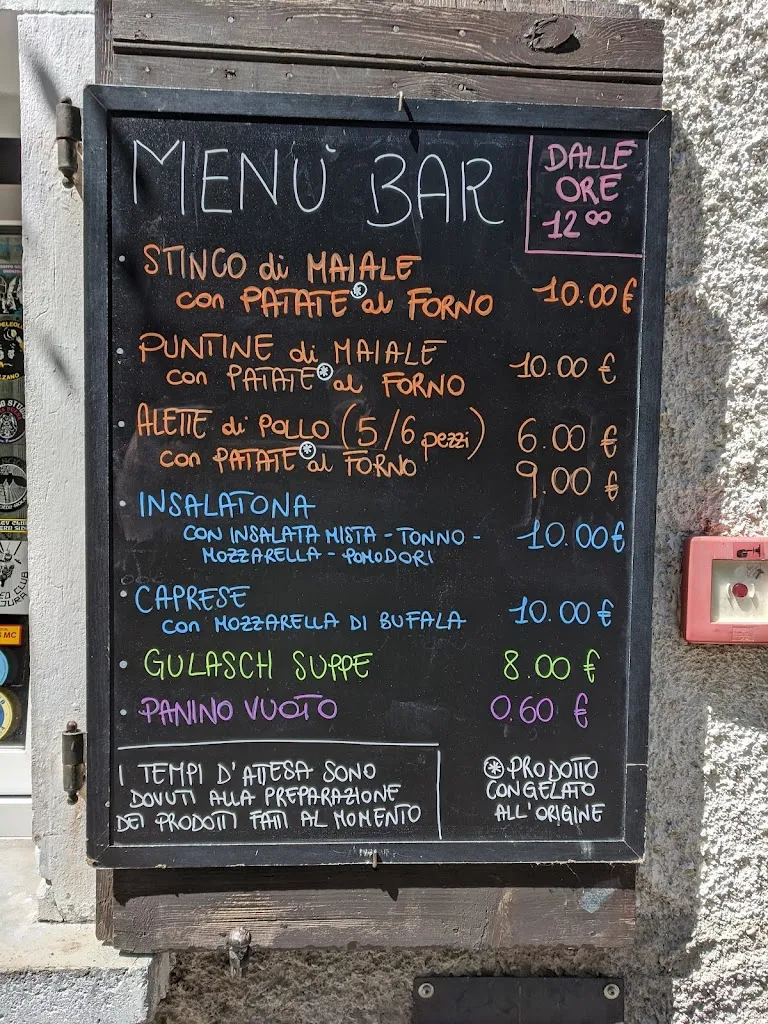 MENÙ BAR
DALLE
ORE
12⁰⁰
• STINCO di MAIALE
con PATATE* al FORNO 10.00 €
• PUNTINE di MAIALE
con PATATE* al FORNO 10.00 €
• ALETTE di POLLO (5/6 pezzi) 6.00 €
con PATATE* al FORNO 9.00 €
• INSALATONA
CON INSALATA MISTA - TONNO - 10.00 €
MOZZARELLA - POMODORI
• CAPRESE
con MOZZARELLA DI BUFALA 10.00 €
• GULASCH SUPPE 8.00 €
• PANINO VUOTO 0.60 €
I TEMPI D'ATTESA SONO
DOVUTI ALLA PREPARAZIONE
DEI PRODOTTI FATTI AL MOMENTO
* PRODOTTO
CONGELATO
ALL'ORIGINE